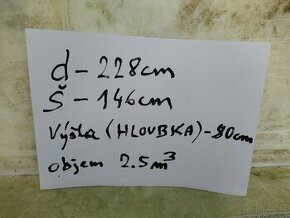 d - 228cm
Š - 146cm
Výška (HLOUBKA) - 80cm
objem 2.5m³